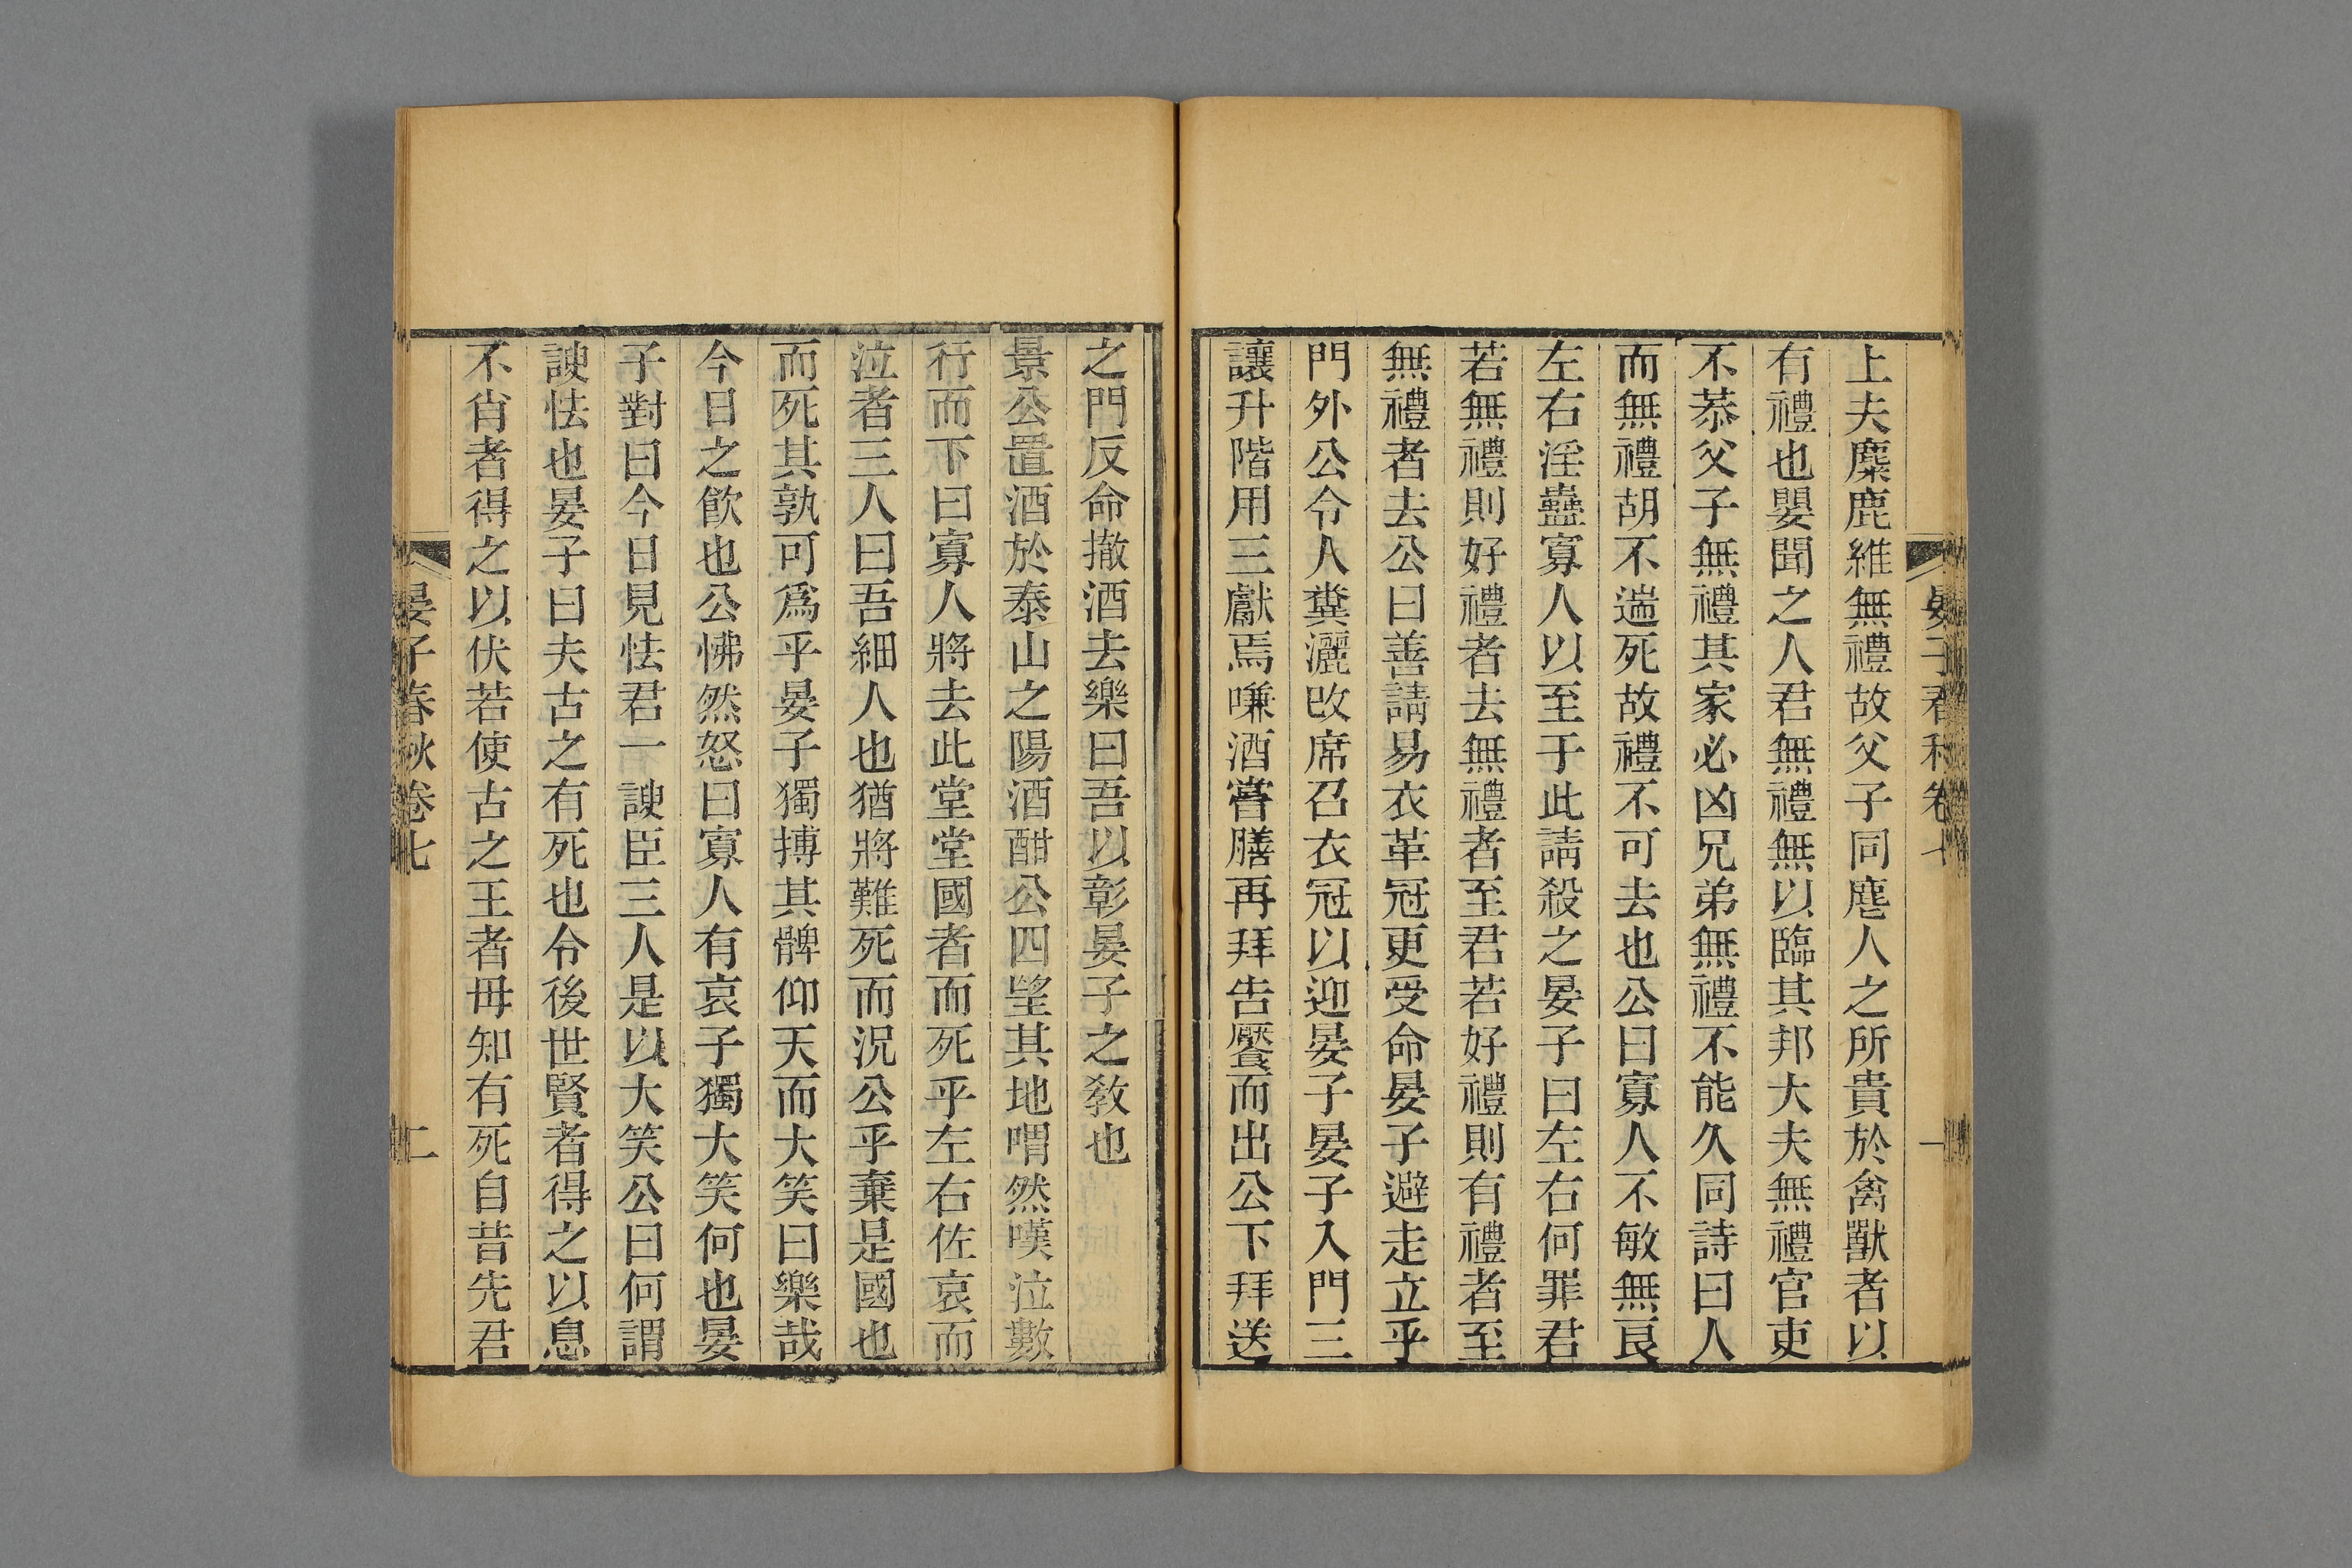 晏子春秋卷七
一
上夫麋鹿維無禮故父子同麀人之所貴於禽獸者以
有禮也嬰聞之人君無禮無以臨其邦大夫無禮官吏
不恭父子無禮其家必凶兄弟無禮不能久同詩曰人
而無禮胡不遄死故禮不可去也公曰寡人不敏無良
左右淫蠱寡人以至于此請殺之晏子曰左右何罪君
若無禮則好禮者去無禮者至君若好禮則有禮者至
無禮者去公曰善請易衣革冠更受命晏子避走立乎
門外公令人糞灑改席召衣冠以迎晏子晏子入門三
讓升階用三獻焉嗛酒嘗膳再拜告饜而出公下拜送
之門反命撤酒去樂曰吾以彰晏子之教也
景公置酒於泰山之陽酒酣公四望其地喟然嘆泣數
行而下曰寡人將去此堂堂國者而死乎左右佐哀而
泣者三人曰吾細人也猶將難死而況公乎棄是國也
而死其孰可爲乎晏子獨搏其髀仰天而大笑曰樂哉
今日之飮也公怫然怒曰寡人有哀子獨大笑何也晏
子對曰今日見怯君一諛臣三人是以大笑公曰何謂
諛怯也晏子曰夫古之有死也令後世賢者得之以息
不肖者得之以伏若使古之王者毋知有死自昔先君
晏子春秋卷七
二